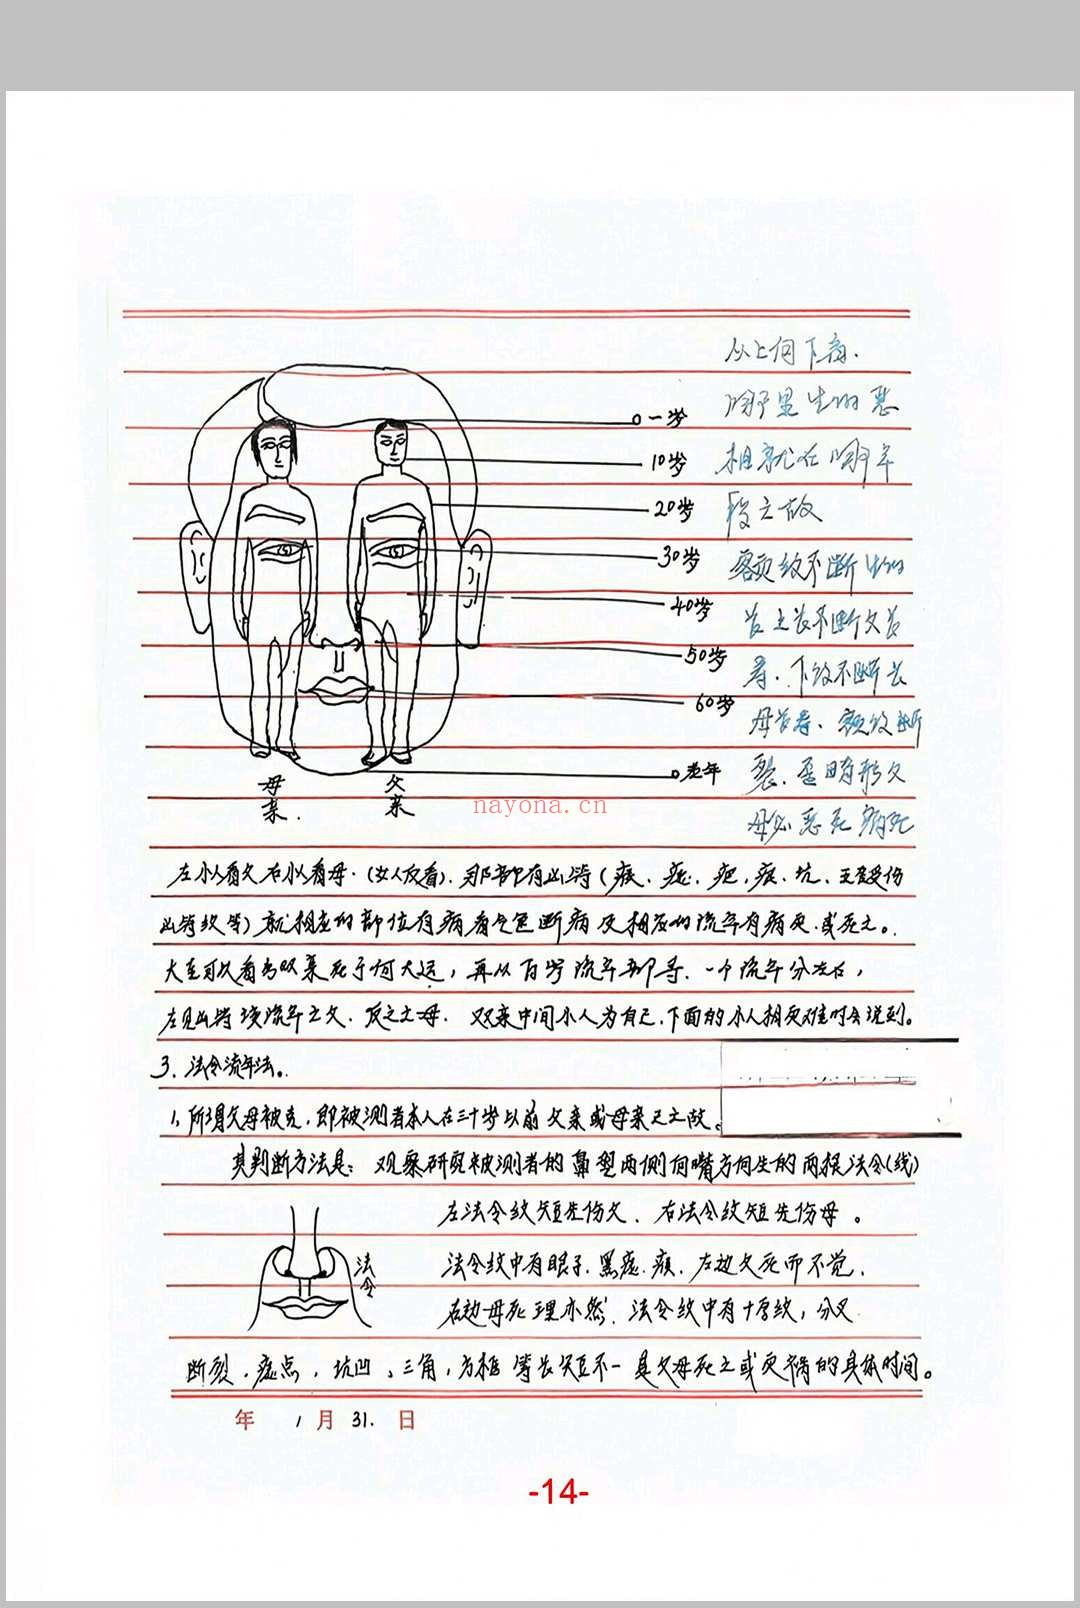 从上向下看.
哪里生的恶
相就在哪年
段亡故
额纹不断生的
长上长不断父长
寿.下纹不断长
母长寿.额纹断
裂.歪曲形父
母必恶死病死
0一岁
10岁
20岁
30岁
40岁
50岁
60岁
0老年
母亲.
父亲
nayona.cn
左小人看父右小人看母.(女人反看).那部有凶特(痣、疤、坑、受伤
凶特纹等)就相应的部位有病看气色断病及相应的流年有病灾.或死亡。
大至可以看出双亲死于何大运,再从百岁流年部寻.一个流年分左右,
左见凶特该流年亡父.反之亡母.双亲中间小人为自己,下面的小人相灾难时会说到。
3.法令流年法。
1,所谓父母被克,即被测者本人在三十岁以前父亲或母亲已亡故。
其判断方法是:观察研究被测者的鼻型两侧向嘴方向生的两根法令(线)
左法令纹短先伤父.右法令纹短先伤母。
法令纹中有眼子.黑痣.瘢.左边父死而不觉.
右边母死理亦然.法令纹中有十字纹,分叉
法令
断裂.痣点,坑凹、三角,方框等长短不一具父母死亡或灾祸的具体时间。
年 1月31.日
-14-